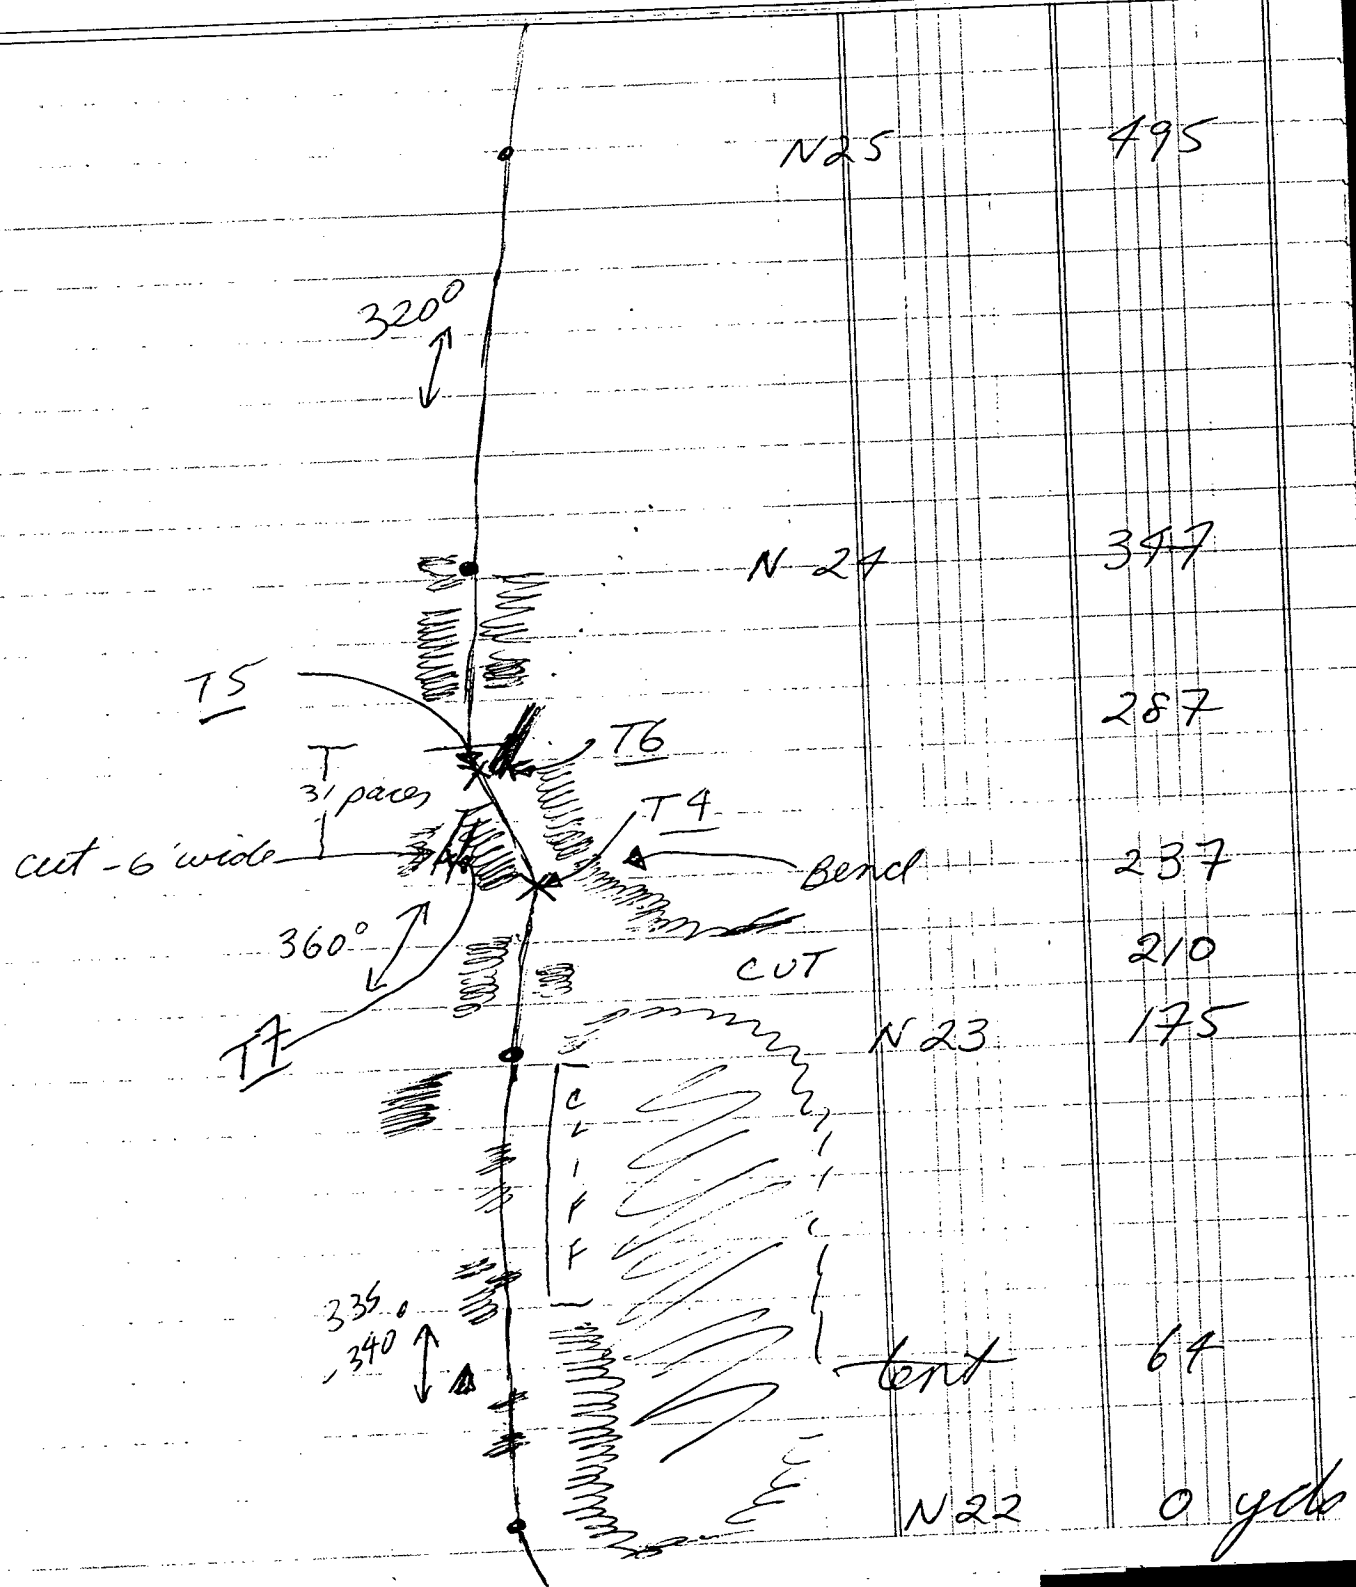 N25 495
320°
N 24 347
T5 287
T6
T
31 paces
T4
cut - 6' wide Bend 237
360° 210
CUT
N 23 175
T7
CLIFF
335°
340°
tent 64
N22 0 yds